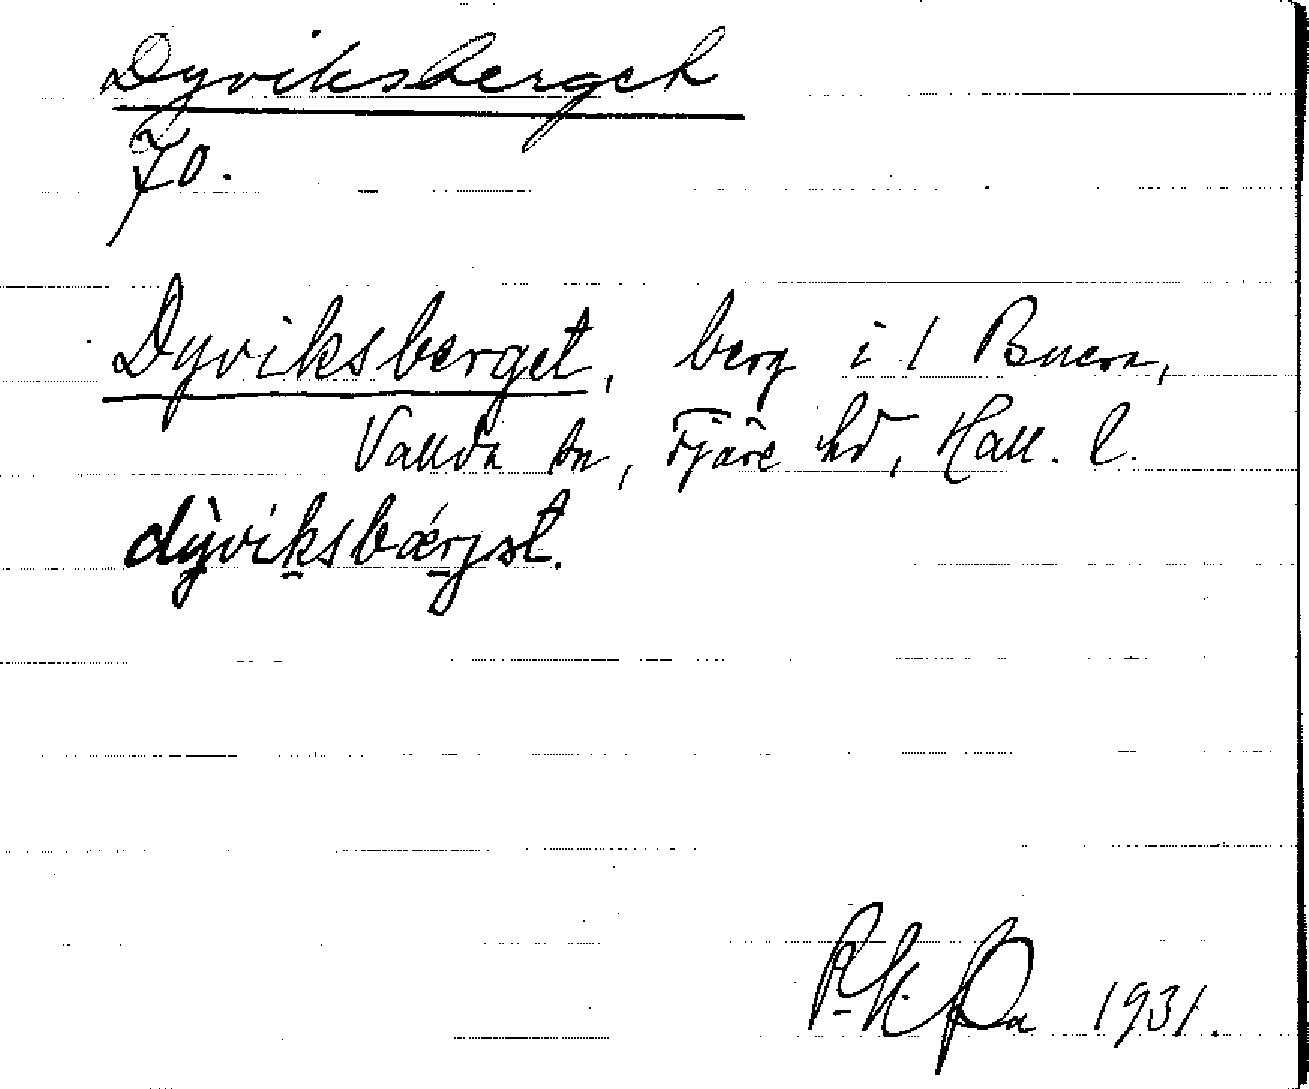 Dyviksberget
70.
Dyviksberget, berg i 1 Buera,
Vallda sn, Fjäre hd, Hall. l.
dỳviksbǽrjət.
1931.